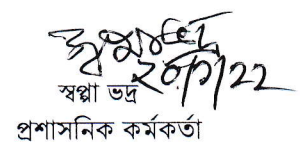 ২০/৭/২২
স্বপ্না ভদ্র
প্রশাসনিক কর্মকর্তা